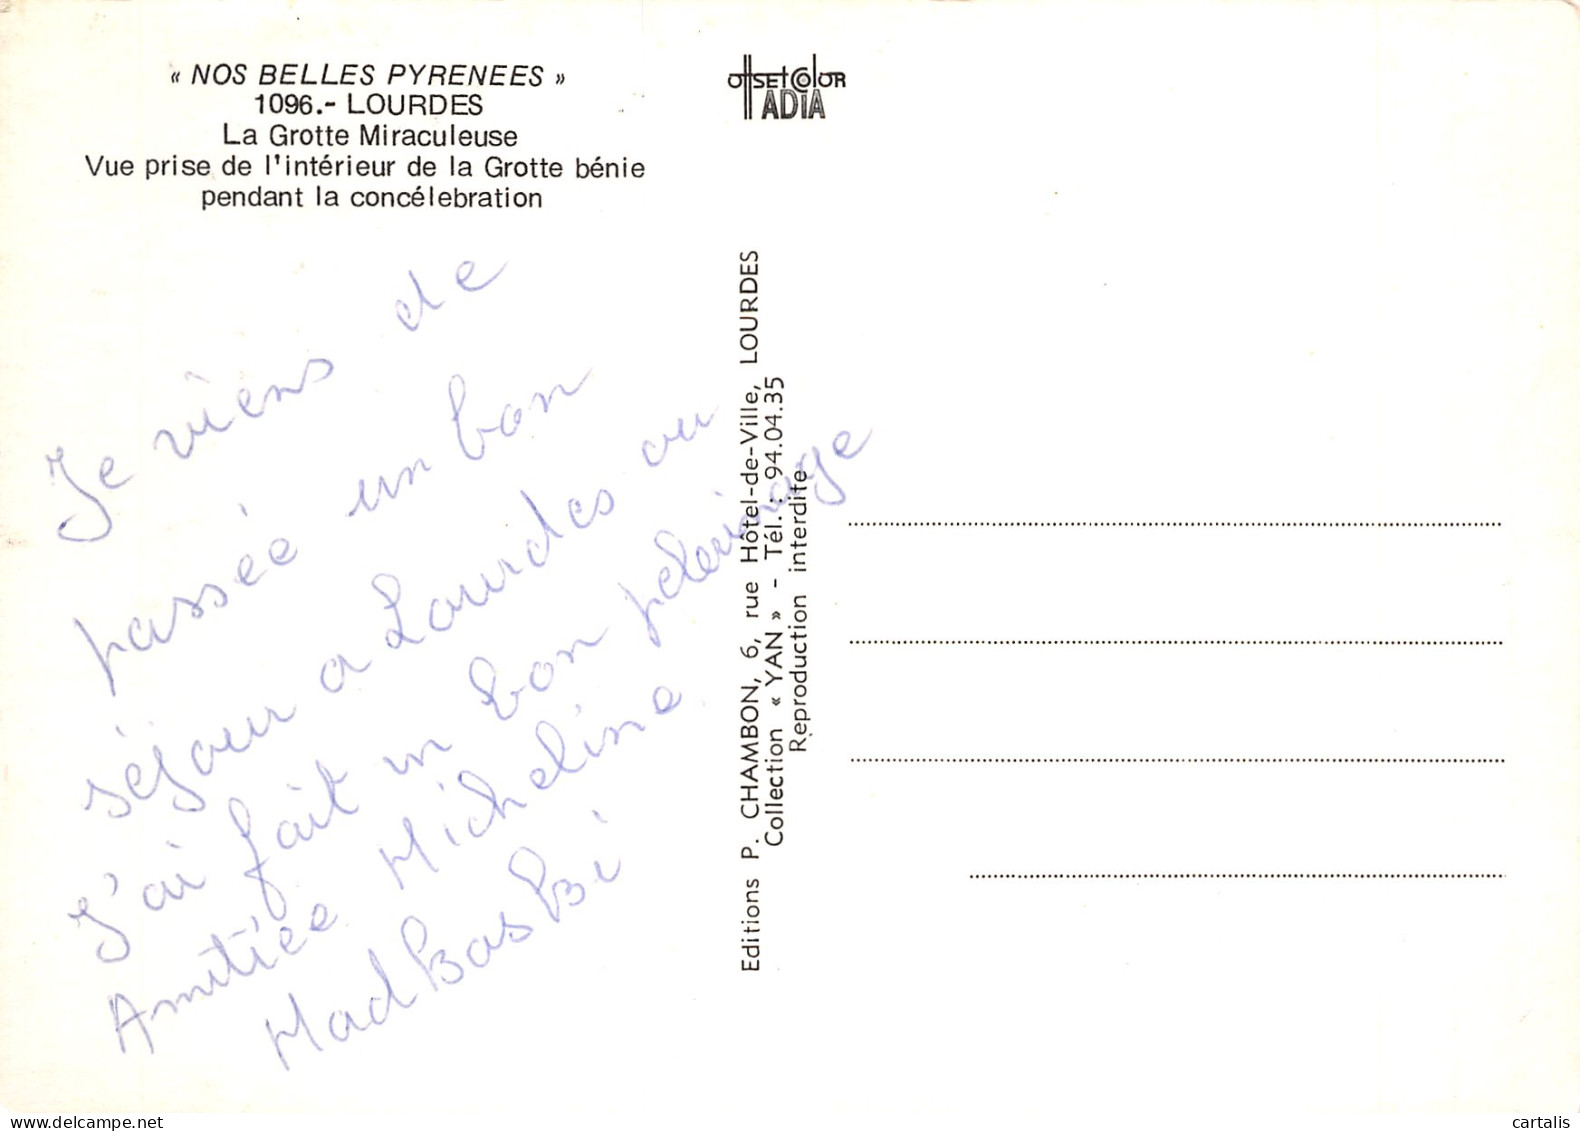 « NOS BELLES PYRENEES »
1096.- LOURDES
La Grotte Miraculeuse
Vue prise de l'intérieur de la Grotte bénie
pendant la concélebration
offset color
ADIA
Je viens de
passée un bon
séjour a Lourdes ou
J'ai fait un bon pelerinage
Amitiée Micheline
Mad Bas Bi
Editions P. CHAMBON, 6, rue Hôtel-de-Ville, LOURDES
Collection « YAN » - Tél. : 94.04.35
Reproduction interdite
delcampe.net
cartalis